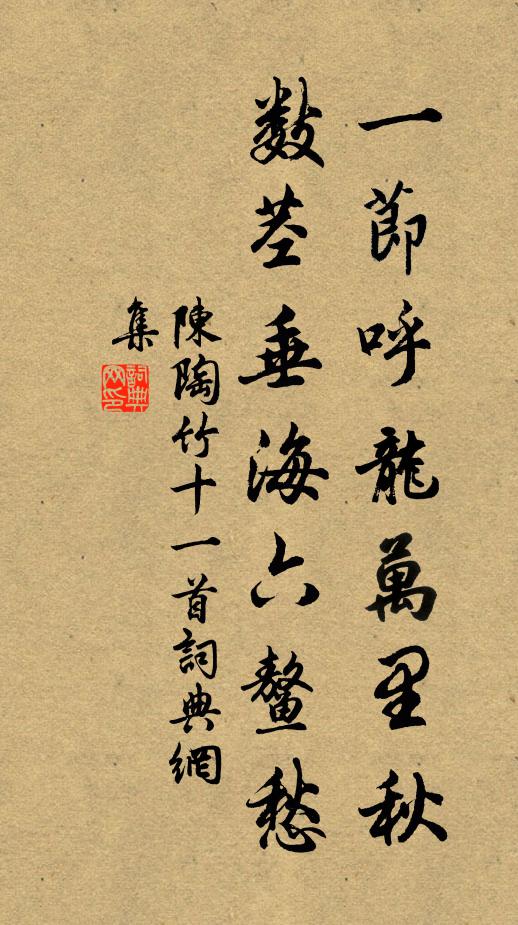 一節呼龍萬里秋
數莖垂海六鼇愁
陳陶竹十一首詞典網
集
詞典網印